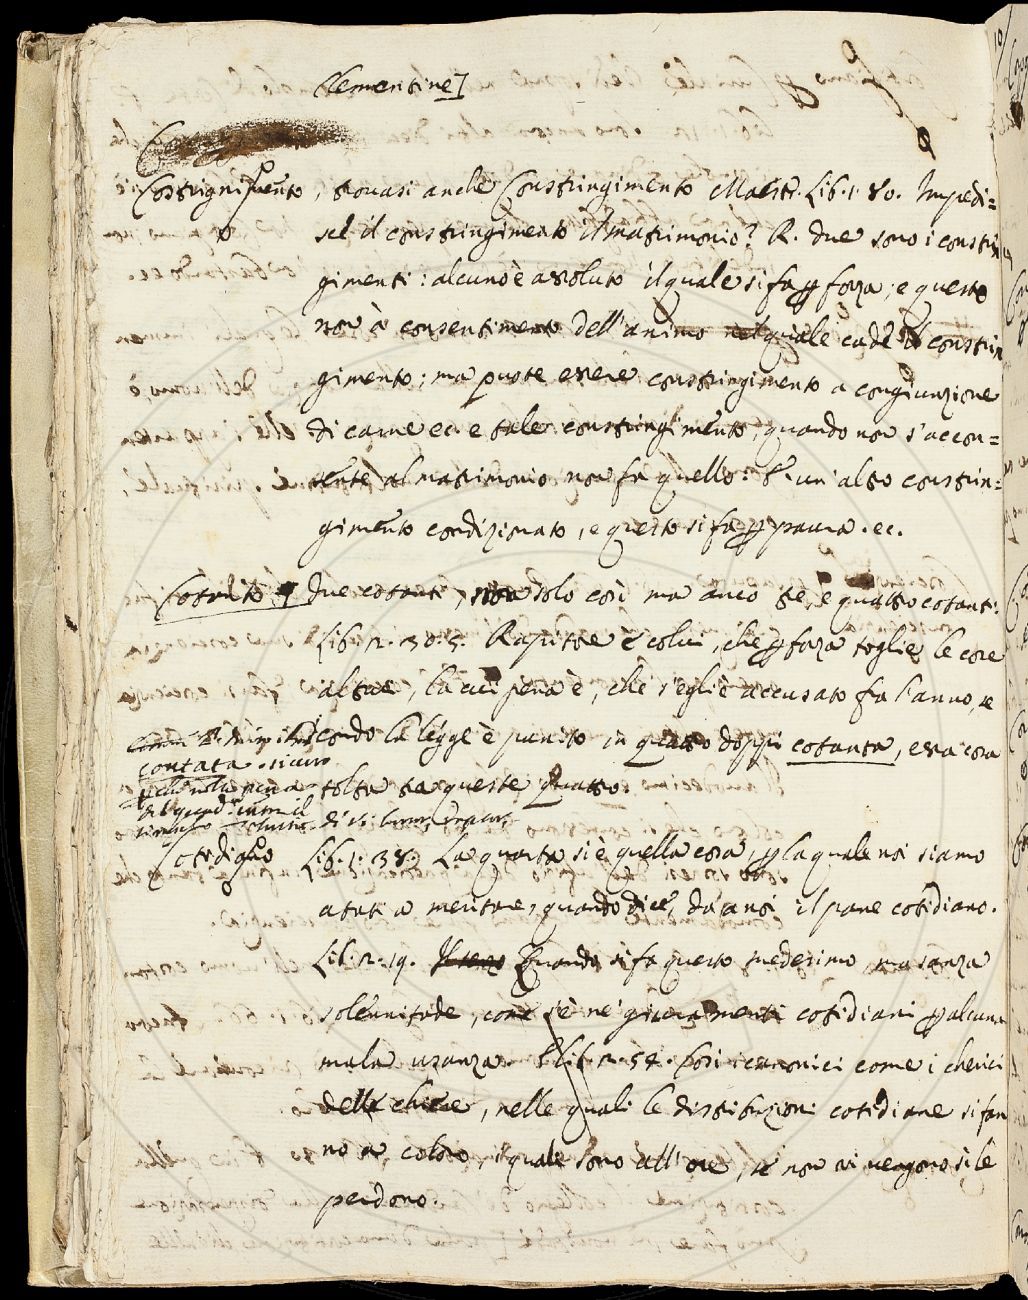 Clementine]
Costrignimento, trovasi anche Constringimento Maestr. Lib. 1. 80. Impedi=
sce il constringimento il matrimonio? R. due sono i constrin
gimenti: alcuno è assoluto il quale si fa p forza; e questo
non è consentimento dell'animo nel quale cade il constrin
gimento; ma puote essere constringimento a congiunzione
di carne ec. e tale constringimento, quando non s'accon=
sente al matrimonio non fa quello: È un altro constrin=
gimento condizionato, e questo si fa p paura. ec.
Cotanto due cotanti, non solo così ma anco tre, e quattro cotanti:
Lib. 2. 30. 5. Rapitore è colui, che p forza toglie le cose
altrui, la cui pena è, che s'egli è accusato fra l'anno, se
condo la legge è punito in quattro doppi cotanta, essa cosa
contata. sicuro
tolta tra queste quattro
Cotidiano Lib. 1. 38. La quarta si è quella cosa, p la quale noi siamo
atati a meritare, quando dice, dà a noi il pane cotidiano.
Lib. 2. 19. Il terzo Quando si fa questo medesimo, ma sanza
solennitade, come sè ne' giuramenti cotidiani p alcuna
mala usanza. E lib. 2. 54. Così i canonici come i cherici
delle chiese, nelle quali le distribuzioni cotidiane si fan
no a coloro, i quale sono all'ore, se non vi vengono si le
perdono.